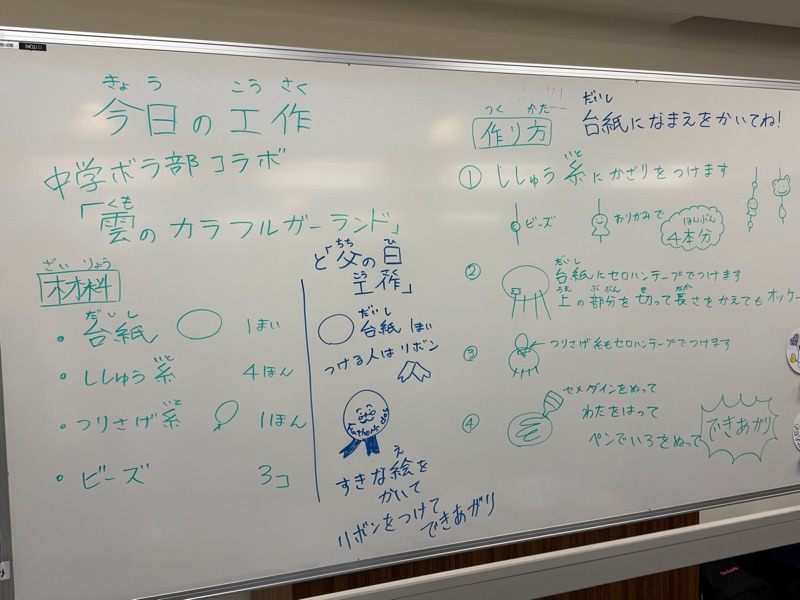 きょう こうさく
今日の工作
中学ボラ部コラボ
くも
「雲のカラフルガーランド」
ざいりょう
材料
だいし
・台紙 1まい
いと
・ししゅう糸 4ほん
いと
・つりさげ糸 1ほん
・ビーズ 3コ
ちち ひ
と「父の日
こうさく
工作」
だいし
台紙 1まい
つける人はリボン
Father's day
え
すきな絵を
かいて
リボンをつけて
できあがり
つく かた
作り方
だいし
台紙になまえをかいてね!
いと
① ししゅう糸にかざりをつけます
ビーズ
おりがみで
ほんぶん
4本分
だいし
② 台紙にセロハンテープでつけます
うえ ぶぶん き なが
上の部分を切って長さをかえてもオッケー
③ つりさげ糸もセロハンテープでつけます
④ セメダインをぬって
わたをはって
ペンでいろをぬって
できあがり